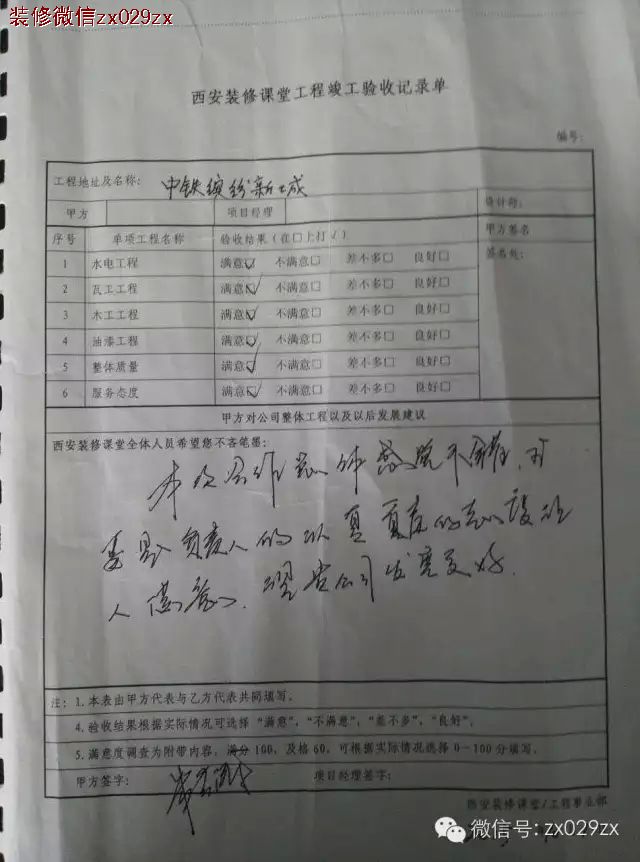 装修微信zx029zx
西安装修课堂工程竣工验收记录单
编号:
工程地址及名称: 中铁缤纷新城
甲方 项目经理 设计师:
序号 单项工程名称 验收结果(在□上打√) 甲方签名
1 水电工程 满意☑ 不满意□ 差不多□ 良好□
2 瓦工工程 满意☑ 不满意□ 差不多□ 良好□
3 木工工程 满意☑ 不满意□ 差不多□ 良好□
4 油漆工程 满意☑ 不满意□ 差不多□ 良好□
5 整体质量 满意☑ 不满意□ 差不多□ 良好□
6 服务态度 满意☑ 不满意□ 差不多□ 良好□
甲方对公司整体工程以及以后发展建议
西安装修课堂全体人员希望您不吝笔墨:
本次合作总体感觉不错,
负责人的
人 公司发展更好.
注: 1.本表由甲方代表与乙方代表共同填写。
4.验收结果根据实际情况可选择“满意”,“不满意”,“差不多”,“良好”。
5.满意度调查为附带内容,满分100,及格60,可根据实际情况选择0-100分填写。
甲方签字: 项目经理签字:
西安装修课堂/工程事业部
微信号: zx029zx